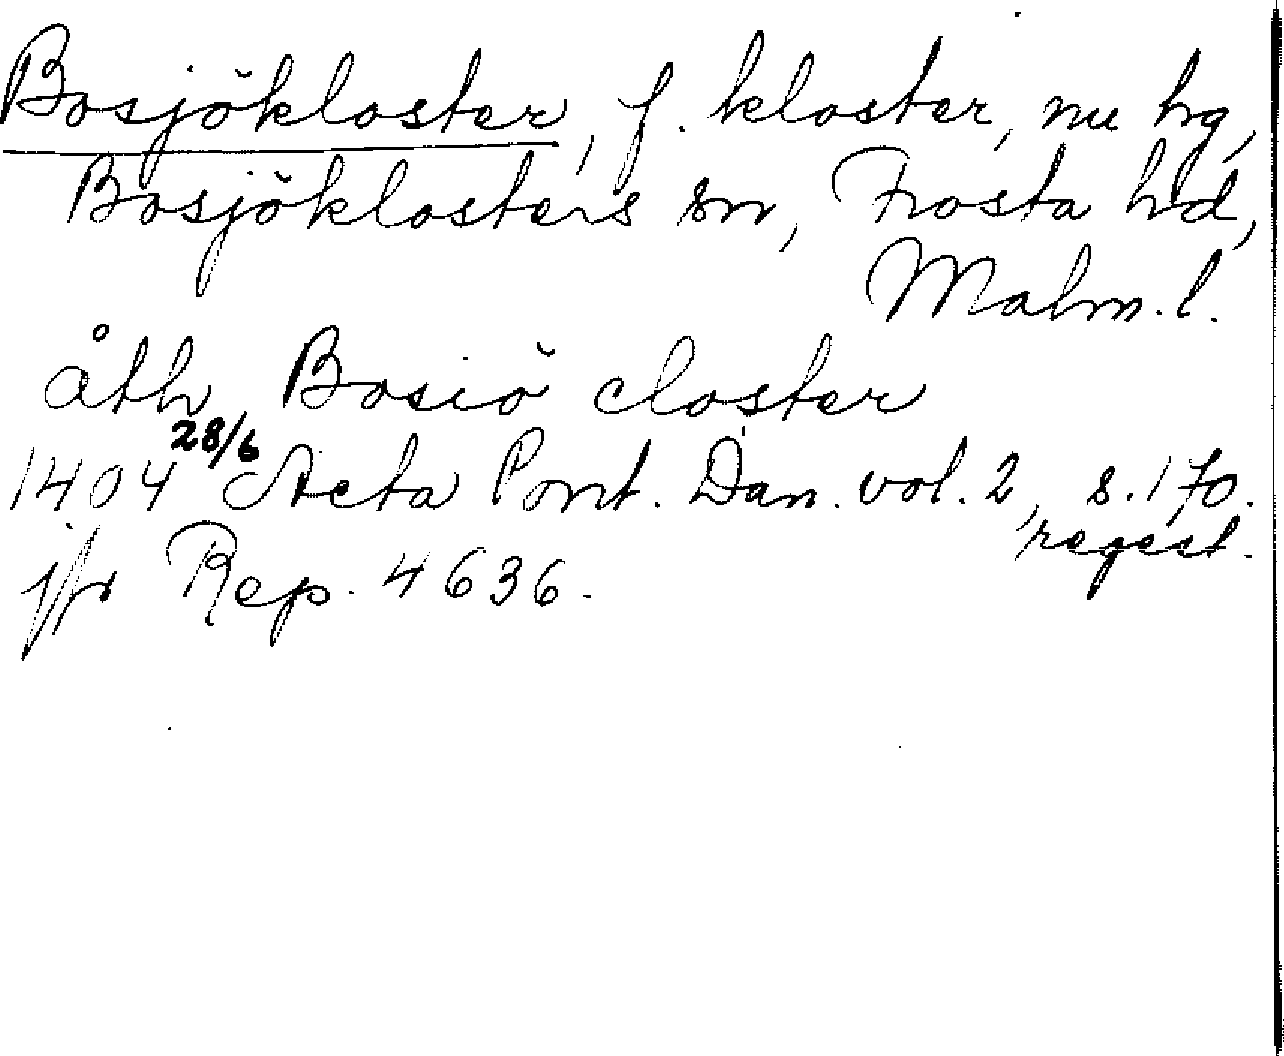 Bosjökloster, f. kloster, nu hg,
Bosjöklosters sn, Frosta hd,
Malm. l.
åth Bosiö closter
1404 28/6 Acta Pont. Dan. vol. 2, s. 170.
regest.
jfr Rep. 4636.